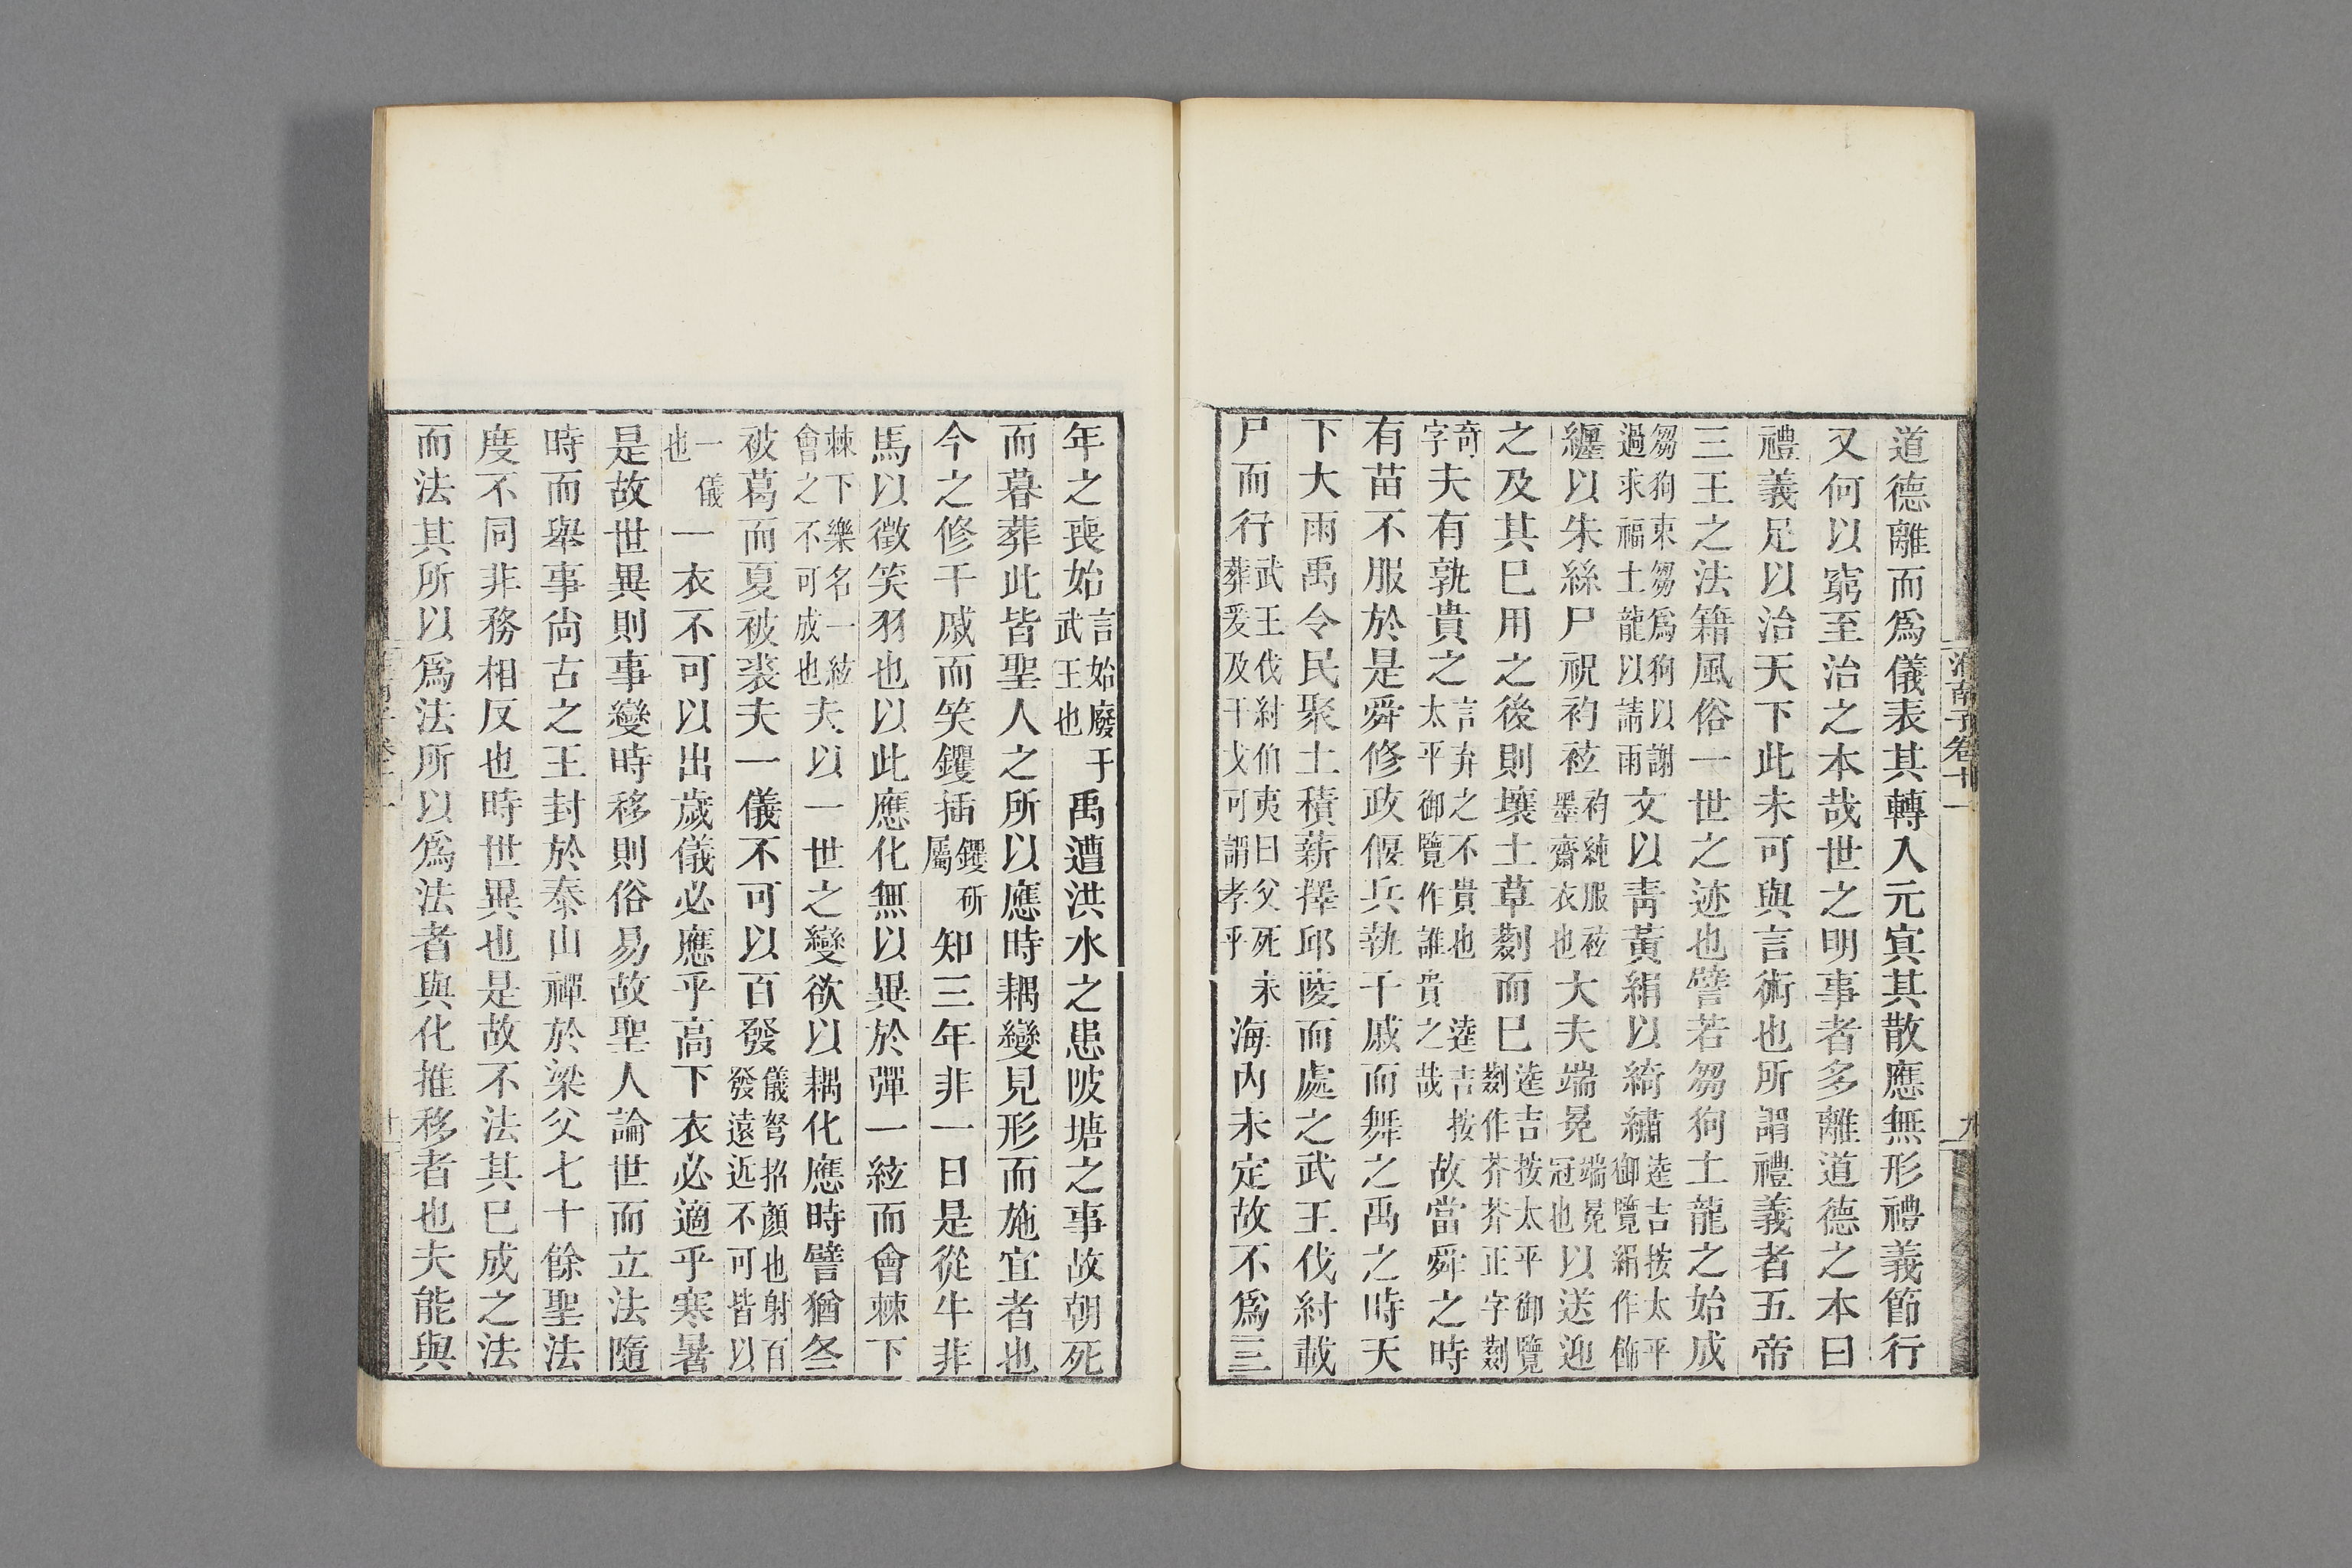 淮南子卷十一
九
道德離而爲儀表其轉入元㝠其散應無形禮義節行
又何以窮至治之本哉世之明事者多離道德之本曰
禮義足以治天下此未可與言術也所謂禮義者五帝
三王之法籍風俗一世之迹也譬若芻狗土龍之始成
芻狗束芻爲狗以謝過求福土龍以請雨文以靑黃絹以綺繡逵吉按太平御覽絹作飾
纒以朱絲尸祝袀袨袀純服袨墨齋衣也大夫端冕端冕冠也以送迎
之及其巳用之後則壤土草㔉而巳逵吉按太平御覽㔉作芥芥正字㔉
奇字夫有孰貴之言弃之不貴也逵吉按太平御覽作誰貴之哉故當舜之時
有苗不服於是舜修政偃兵執干戚而舞之禹之時天
下大雨禹令民聚土積薪擇邱陵而處之武王伐紂載
尸而行武王伐紂伯夷曰父死未葬爰及干戈可謂孝乎海內未定故不爲三
年之喪始言始廢于武王也禹遭洪水之患陂塘之事故朝死
而暮葬此皆聖人之所以應時耦變見形而施宜者也
今之修干戚而笑钁插钁斫屬知三年非一日是從牛非
馬以徵笑羽也以此應化無以異於彈一絃而會棘下
棘下樂名一絃會之不可成也夫以一世之變欲以耦化應時譬猶冬
被葛而夏被裘夫一儀不可以百發儀弩招顏也射百發遠近不可皆以
一儀也一衣不可以出歲儀必應乎高下衣必適乎寒暑
是故世異則事變時移則俗易故聖人論世而立法隨
時而舉事尙古之王封於泰山禪於梁父七十餘聖法
度不同非務相反也時世異也是故不法其巳成之法
而法其所以爲法所以爲法者與化推移者也夫能與